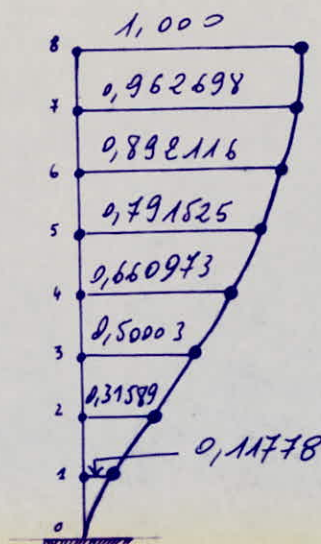 8 1,000
7 0,962698
6 0,892116
5 0,791525
4 0,660973
3 0,50003
2 0,31589
1 0,11778
0